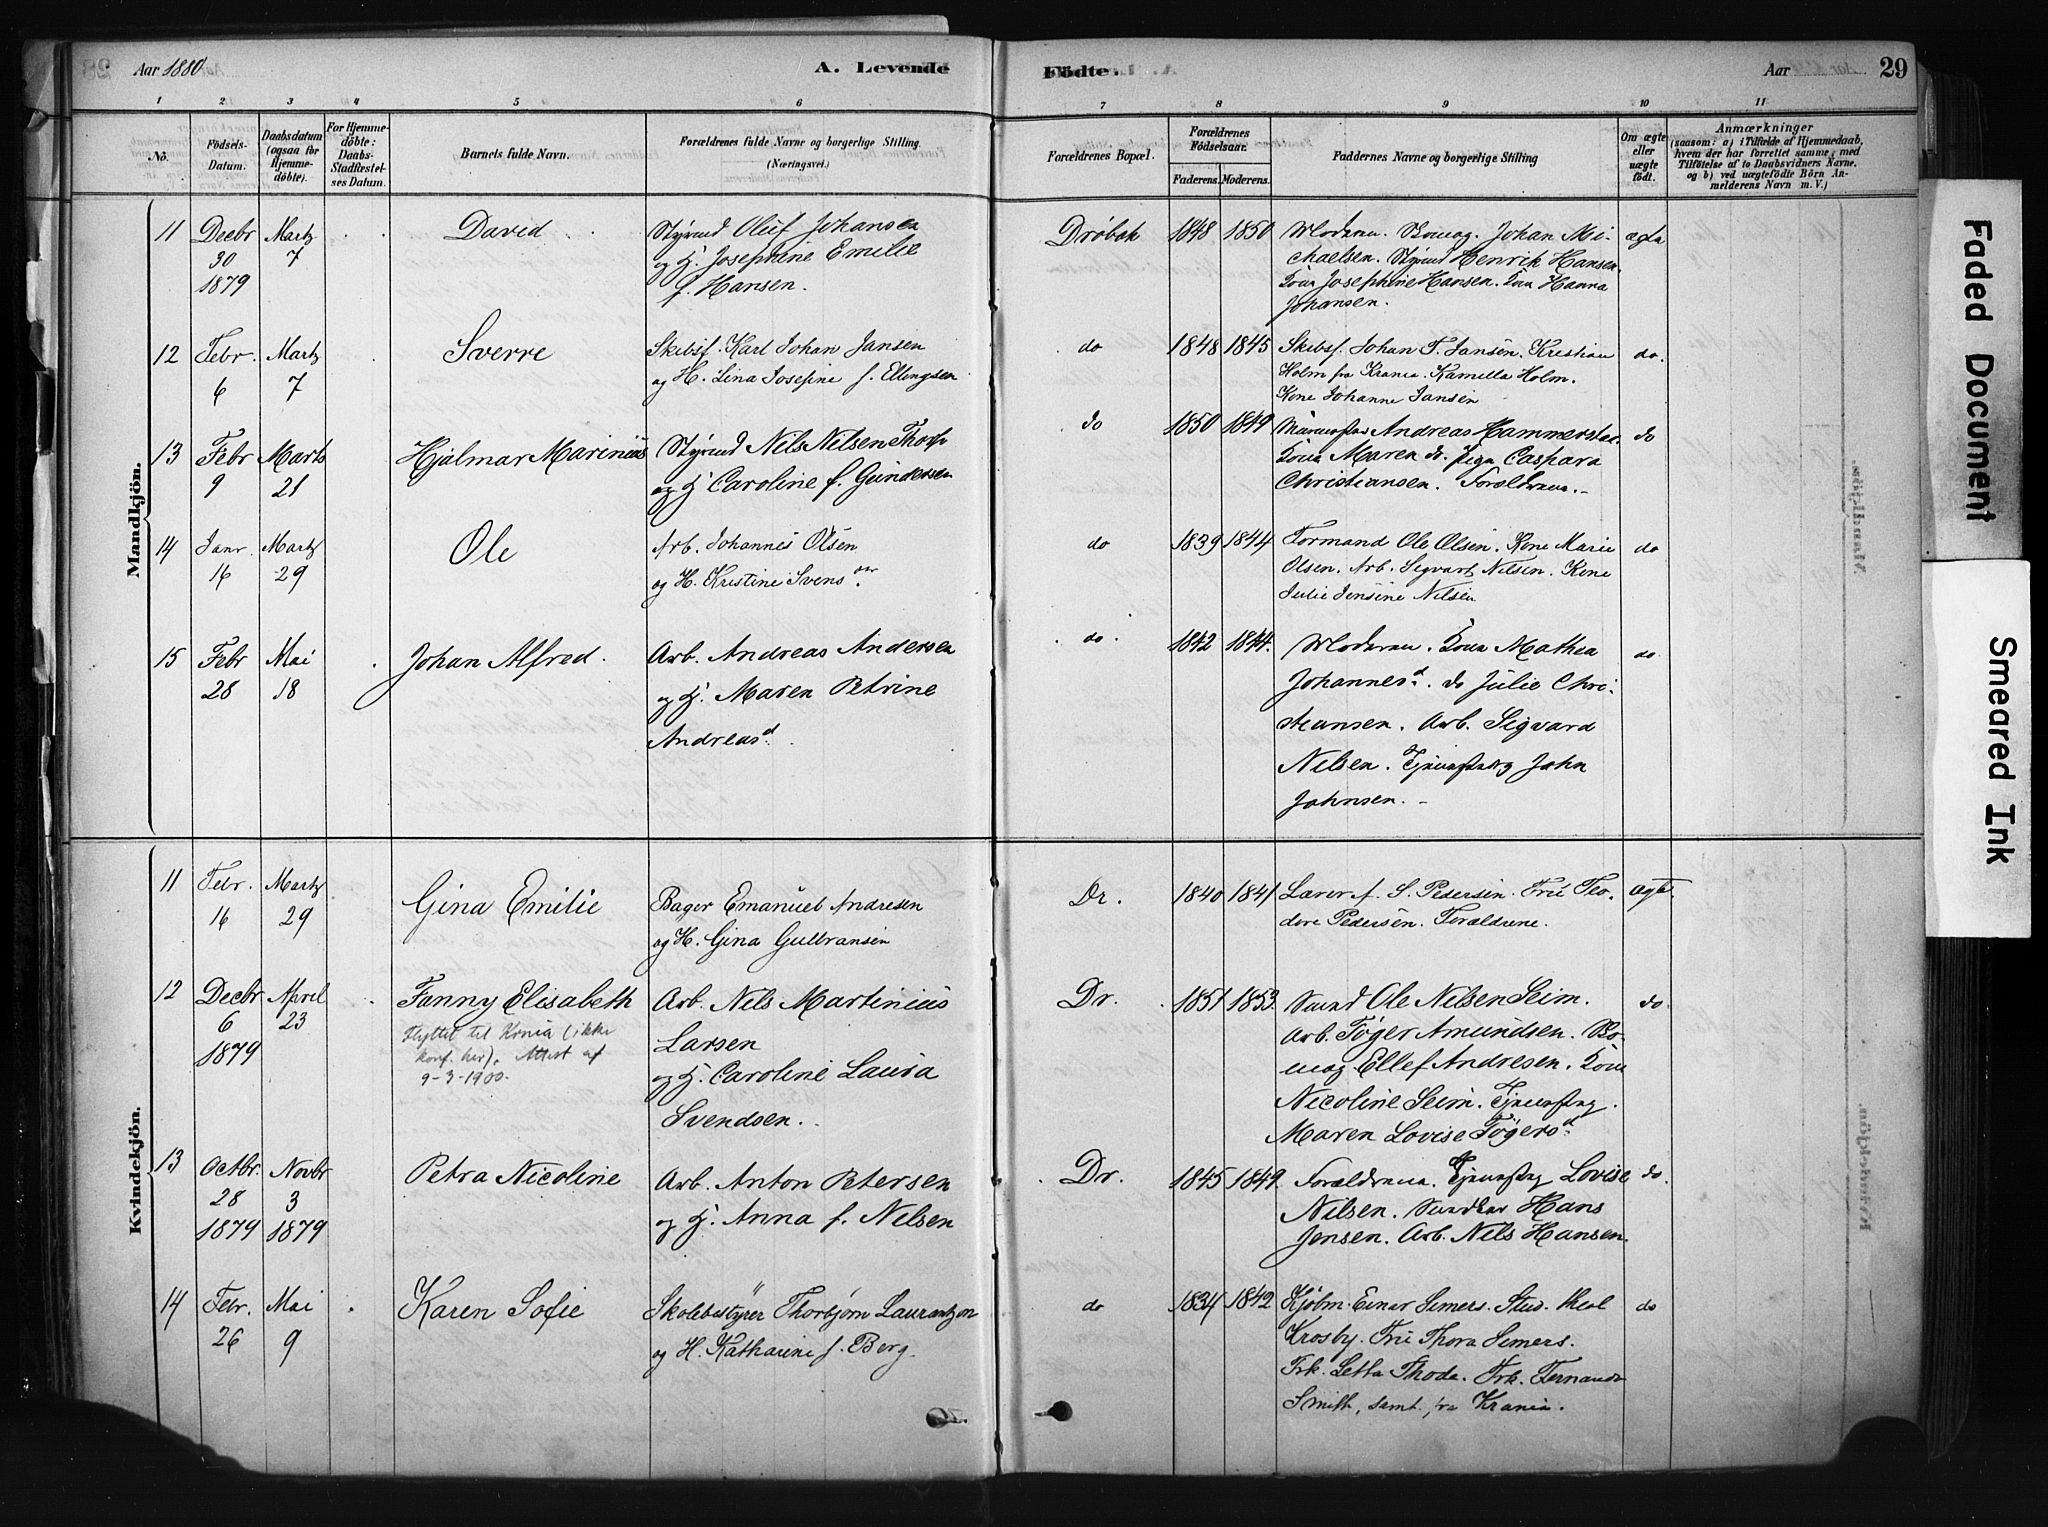 Aar 1880
A. Levende
Födte.
Aar
29
1 2 3 4 5 6 7 8 9 10 11
No.
Födsels-Datum.
Daabsdatum (ogsaa for Hjemmedöbte).
For Hjemmedöbte: Daabs-Stadfæstelses Datum.
Barnets fulde Navn.
Forældrenes fulde Navne og borgerlige Stilling
(Næringsvei.)
Forældrenes Bopæl.
Forældrenes Födselsaar.
Faderens. Moderens.
Faddernes Navne og borgerlige Stilling
Om ægte eller uægte födt.
Anmærkninger
(saasom: a) i Tilfælde af Hjemmedaab,
hvem der har forrettet samme, med
Tilföielse af to Daabsvidners Navne,
og b) ved uægtefödte Börn An-
melderens Navn m. V.)
Mandkjön.
11 Decbr 30 1879 Martz 7 David
Styrmd Oluf Johansen
og H. Josephine Emilie
f. Hansen.
Drøbak 1848 1850
Johan Mi-
chaelsen. Styrmd Henrik Hansen.
Kone Josephine Hansen. Kone Hanna
Johansen.
ægte
12 Febr. 6 Martz 7 Sverre
Skibsf. Karl Johan Jansen
og H. Lina Josefine f. Ellingsen
do 1848 1845
Skibsf. Johan F. Jansen. Kristian
Holm fra Krania. Kamilla Holm.
Kone Johanne Jansen
do.
13 Febr 9 Marts 21 Hjalmar Marinius
Styrmd Nils Nilsen Thorp
og H Caroline f. Gundersen
do 1850 1849
Andreas Hammerstad
Kone Maren do. Pige Caspara
Christiansen. Forældrene.
do
14 Janr. 16 Martz 29 Ole
Arb. Johannes Olsen
og H. Kristine Svensdr.
do 1839 1844
Formand Ole Olsen. Kone Marie
Olsen. Arb. Sigvart Nilsen. Kone
Julie Jensine Nilsen
do
15 Febr 28 Mai 18 Johan Alfred.
Arb. Andreas Andersen
og H. Maren Petrine
Andreasd.
do. 1842 1844.
Moderen. Kone Mathea
Johannesd. do Julie Chri-
stiansen. Arb. Sigvard
Nilsen. John
Johnsen.
do
Kvindekjön.
11 Febr. 16 Martz 29 Gina Emilie
Bager Emanuel Andresen
og H. Gina Gulbransen
Dr. 1840 1841
Lærer A. S. Pedersen. Fru Teo-
dore Pedersen. Forældrene.
ægte
12 Decbr 6 1879 April 23 Fanny Elisabeth
Flyttet til Krnia (ikke
konf. her). Attest af
9-3-1900.
Arb. Nils Martinius
Larsen
og H. Caroline Laura
Svendsen.
Dr. 1851 1853.
Ole Nilsen Seim.
Arb. Tøger Amundsen.
Ellef Andresen. Kone
Nicoline Seim.
Maren Lovise Tøgersd.
do.
13 Octbr. 28 1879 Novbr 3 1879 Petra Nicoline
Arb. Anton Petersen
og H. Anna f. Nilsen
Dr. 1845 1849.
Forældrene. Lovise
Nilsen. Hans
Jensen. Arb. Nils Hansen.
do.
14 Febr. 26 Mai 9 Karen Sofie
Skolebestyrer Thorbjørn Laurantzon
og H. Katharine f. Berg.
do 1834 1842
Kjøbm. Einar Semers. Stud. theol
Krosby. Fru Thora Semers.
Frk. Letta Thode. Frk. Fernanda
Smith, samt. fra Krania.
do
Faded Document
Smeared Ink